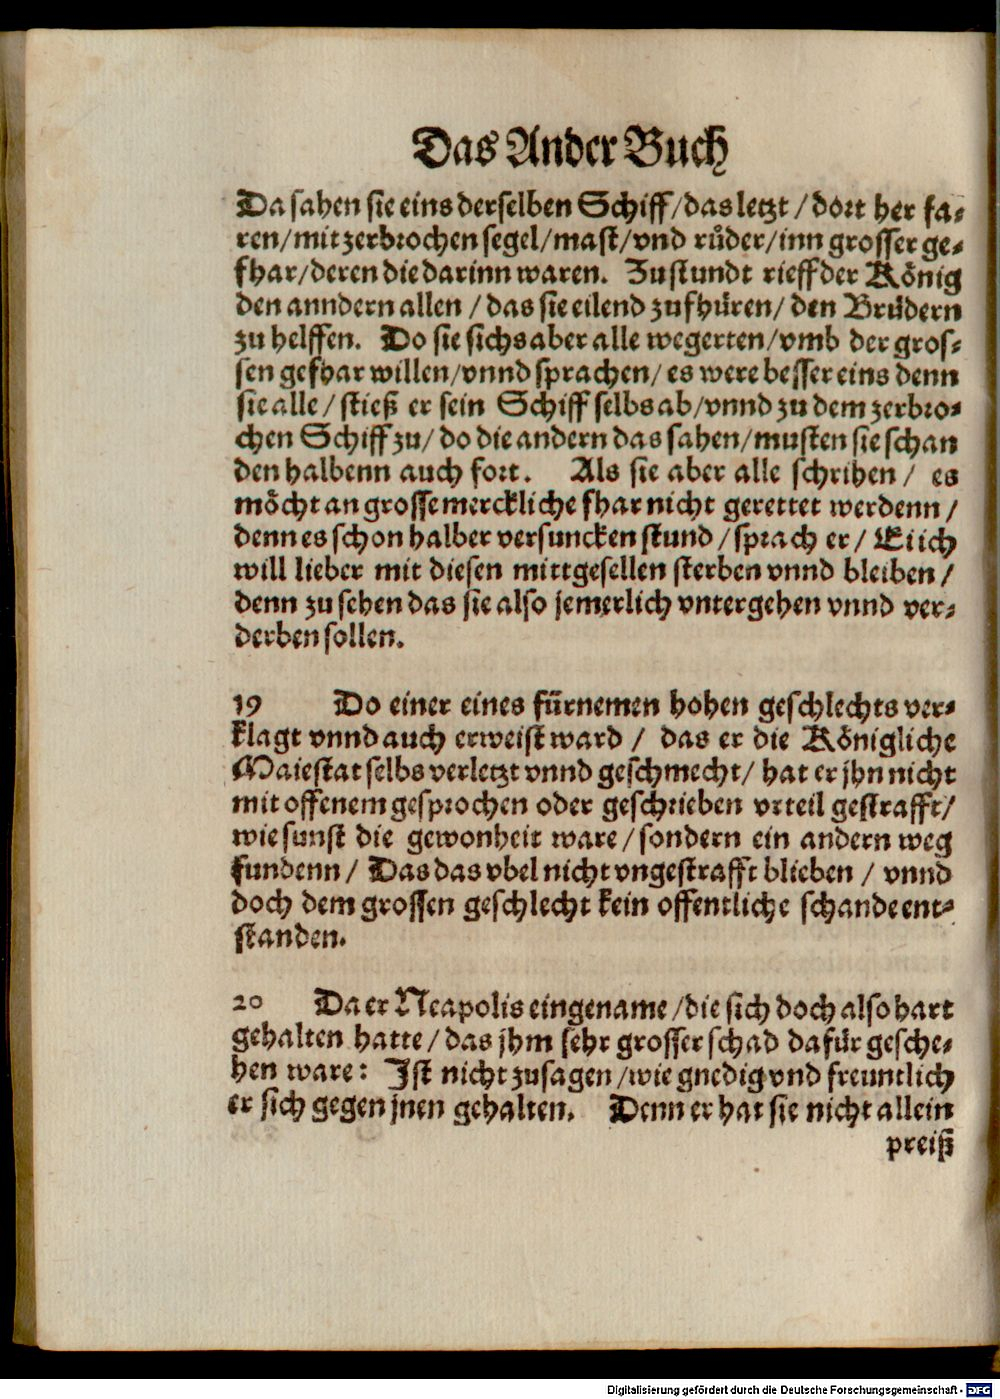 Das Ander Buch
Da sahen sie eins derselben Schiff/das letzt/dort her fa-
ren/mit zerbrochen segel/mast/vnd růder/inn grosser ge-
fhar/deren die darinn waren. Zu stundt rieff der König
den anndern allen/das sie eilend zufhüren/den Brüdern
zu helffen. Do sie sichs aber alle wegerten/vmb der gros-
sen gefhar willen/vnnd sprachen/es were besser eins denn
sie alle/stieß er sein Schiff selbs ab/vnnd zu dem zerbro-
chen Schiff zu/do die andern das sahen/musten sie schan
den halbenn auch fort. Als sie aber alle schrihen/es
möcht an grosse merckliche fhar nicht gerettet werdenn/
denn es schon halber versuncken stund/sprach er/Ei ich
will lieber mit diesen mittgesellen sterben vnnd bleiben/
denn zu sehen das sie also jemerlich vntergehen vnnd ver-
derben sollen.
19 Do einer eines fürnemen hohen geschlechts ver-
klagt vnnd auch erweist ward/das er die Königliche
Maiestat selbs verletzt vnnd geschmecht/hat er jhn nicht
mit offenem gesprochen oder geschrieben vrteil gestrafft/
wie sunst die gewonheit ware/sondern ein andern weg
fundenn/Das das vbel nicht vngestrafft blieben/vnnd
doch dem grossen geschlecht kein offentliche schande ent-
standen.
20 Da er Neapolis eingename/die sich doch also hart
gehalten hatte/das jhm sehr grosser schad dafür gesche-
hen ware: Ist nicht zusagen/wie gnedig vnd freuntlich
er sich gegen jnen gehalten. Denn er hat sie nicht allein
preiß
Digitalisierung gefördert durch die Deutsche Forschungsgemeinschaft - DFG